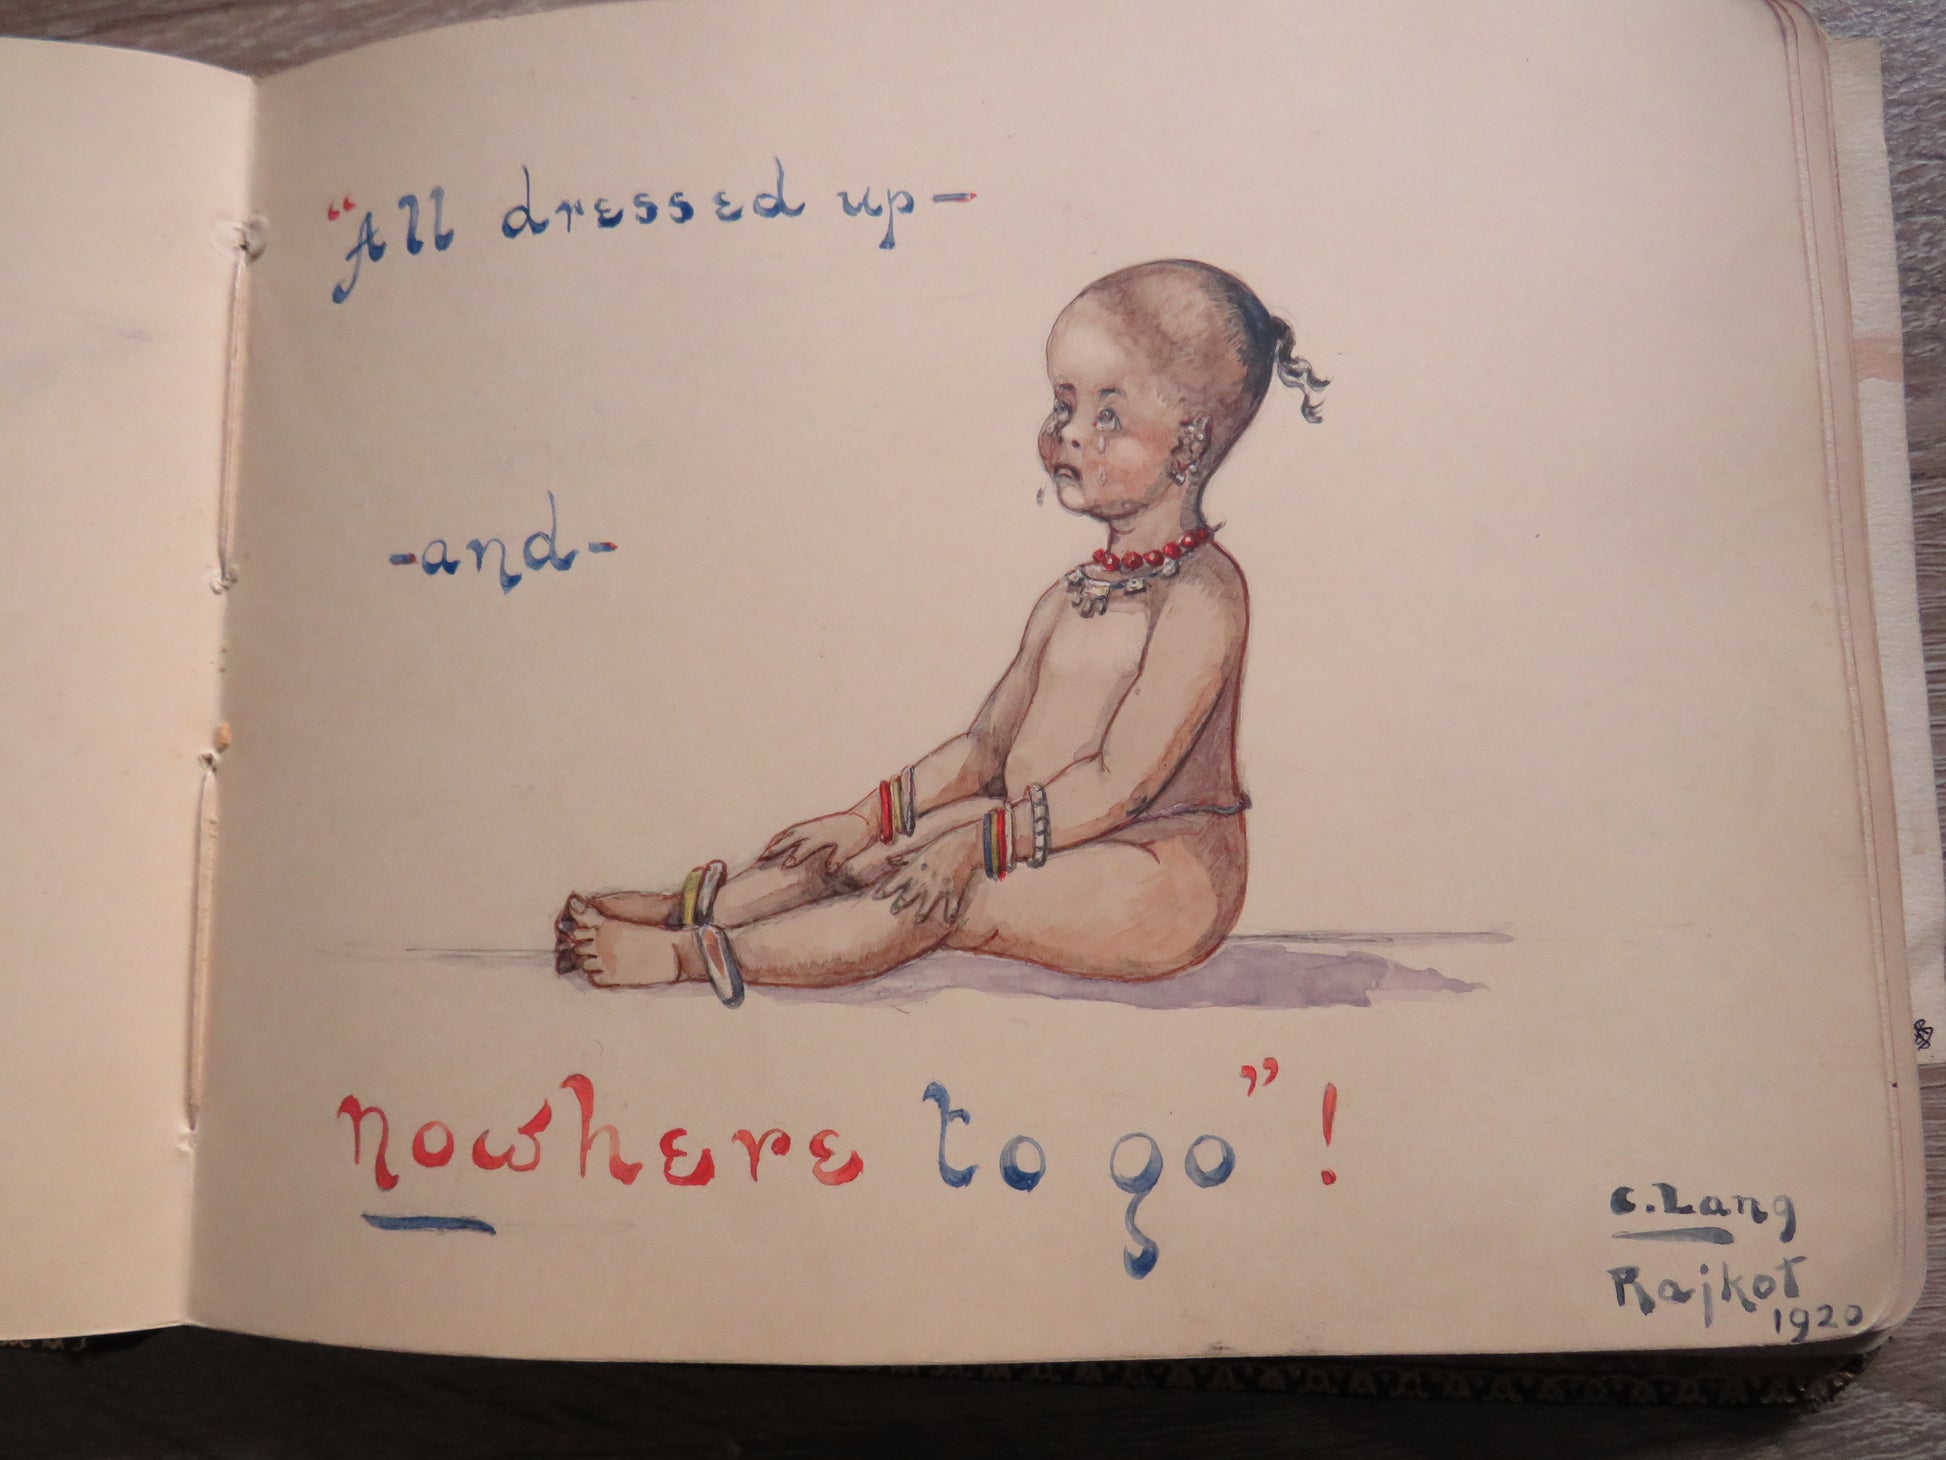 "All dressed up-
-and-
nowhere to go"!
C. Lang
Rajkot
1920